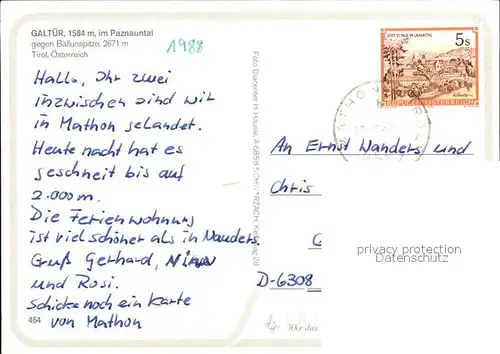 GALTÜR, 1584 m, im Paznauntal
gegen Ballunspitze, 2671 m
Tirol, Österreich
1988
Hallo, Ihr zwei
inzwischen sind wir
in Mathon gelandet.
Heute nacht hat es
geschneit bis auf
2.000 m.
Die Ferienwohnung
ist viel schöner als in Nauders.
Gruß Gerhard,
und Rosi.
Schicke noch ein Karte
von Mathon
464
Foto Dacenter H. Häusle, A-6858 SCHWARZACH,
STIFT ST. PAUL IM LAVANTTAL
5s
REPUBLIK ÖSTERREICH
MATHON
An Ernst Wanders und
Chris
D-6308
privacy protection
Datenschutz